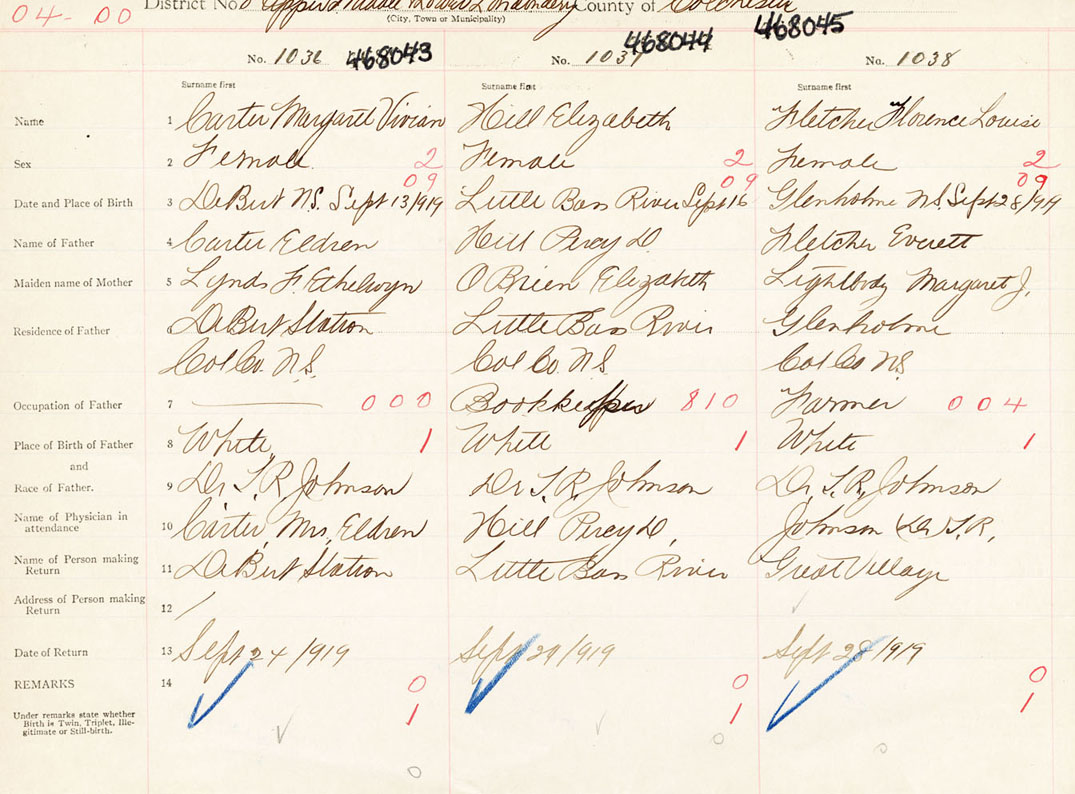 04-00 District No. 8 Upper & Middle Lower Londonderry County of Colchester
(City, Town or Municipality)
No. 1036 468043 No. 1037 468044 No. 1038 468045
Surname first Surname first Surname first
Name 1 Carter Margaret Vivian Hill Elizabeth Fletcher Florence Louise
Sex 2 Female 2 Female 2 Female 2
09 09 09
Date and Place of Birth 3 DeBert N.S. Sept 13/1919 Little Bass River Sept 16 Glenholme N.S. Sept 28/1919
Name of Father 4 Carter Eldren Hill Percy D Fletcher Everett
Maiden name of Mother 5 Lynds F. Ethelwyn O'Brien Elizabeth Lightbody Margaret J.
Residence of Father DeBert Station Little Bass River Glenholme
Col Co. N.S. Col Co. N.S. Col Co N.S.
Occupation of Father 7 000 Bookkeeper 810 Farmer 004
Place of Birth of Father 8 White 1 White 1 White 1
and
Race of Father. 9 Dr. T. R. Johnson Dr T. R. Johnson Dr. T. R. Johnson
Name of Physician in attendance 10 Carter, Mrs. Eldren Hill Percy D. Johnson Dr T. R.
Name of Person making Return 11 DeBert Station Little Bass River Great Village
Address of Person making Return 12 /
Date of Return 13 Sept 24/1919 Sept 29/1919 Sept 28/1919
REMARKS 14 0 0 0
Under remarks state whether Birth is Twin, Triplet, Ille- 1 1 1
gitimate or Still-birth.
0 0 0